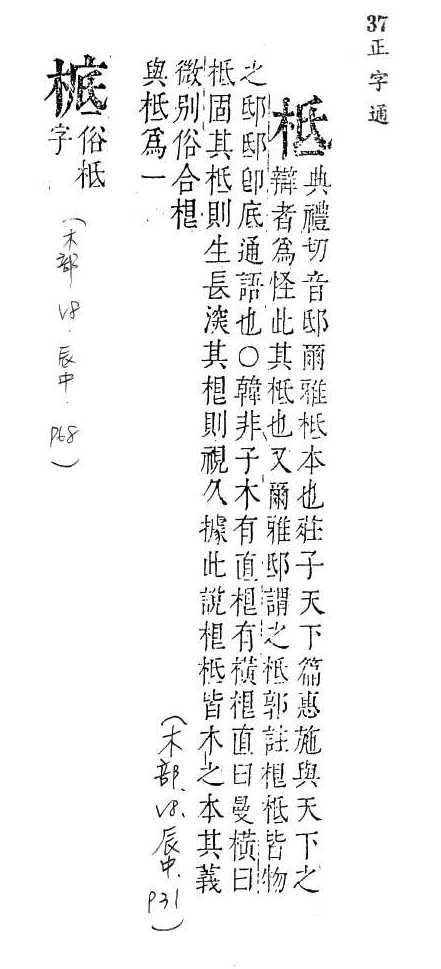 37正字通
柢
典禮切音邸爾雅柢本也莊子天下篇惠施與天下之
辯者爲怪此其柢也又爾雅邸謂之柢郭註根柢皆物
之邸邸卽底通語也○韓非子木有直根有橫根直曰曼橫曰
柢固其柢則生長深其根則視久據此說根柢皆木之本其義
微別俗合根
與柢爲一
(木部.V8.辰中.P31)
㭽
俗柢
字
(木部V8.辰中.P68)